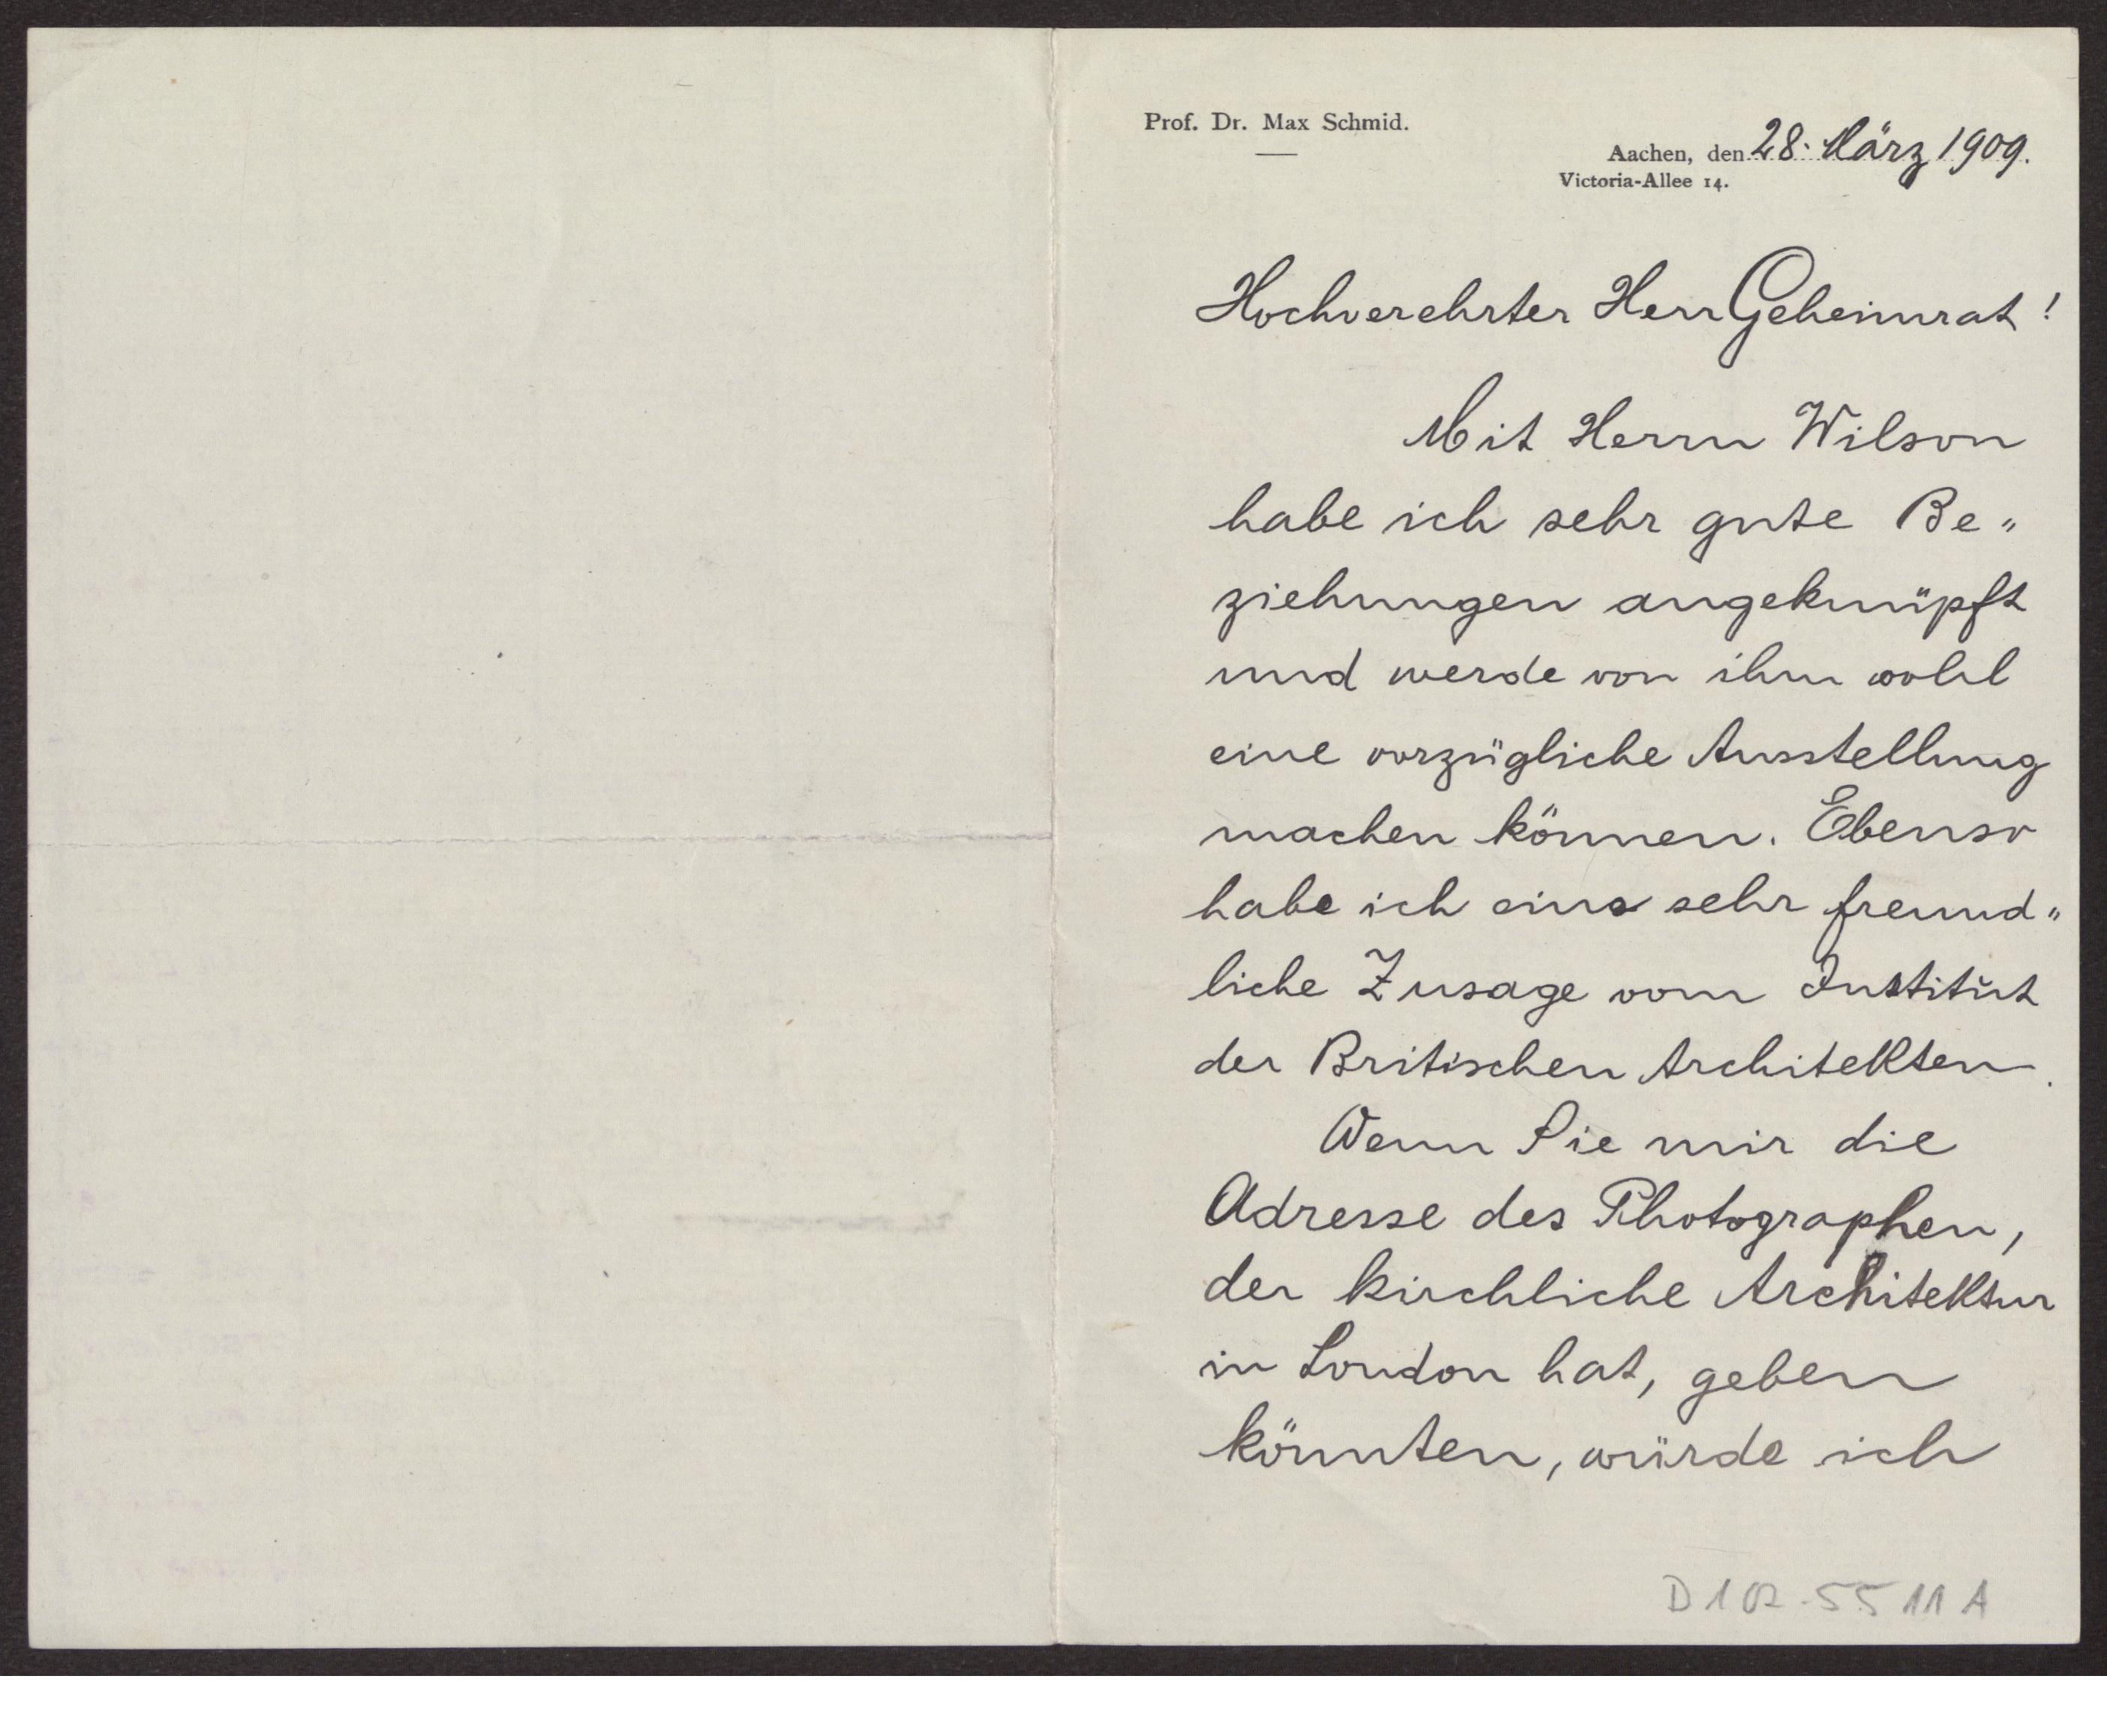 Prof. Dr. Max Schmid.
Aachen, den 28. März 1909.
Victoria-Allee 14.
Hochverehrter Herr Geheimrat!
Mit Herrn Wilson
habe ich sehr gute Be„
ziehungen angeknüpft
und werde von ihm wohl
eine vorzügliche Ausstellung
machen können. Ebenso
habe ich eine sehr freund„
liche Zusage vom Institut
der Britischen Architekten.
Wenn Sie mir die
Adresse des Photographen,
der kirchliche Architektur
in London hat, geben
könnten, würde ich
D102-5511A